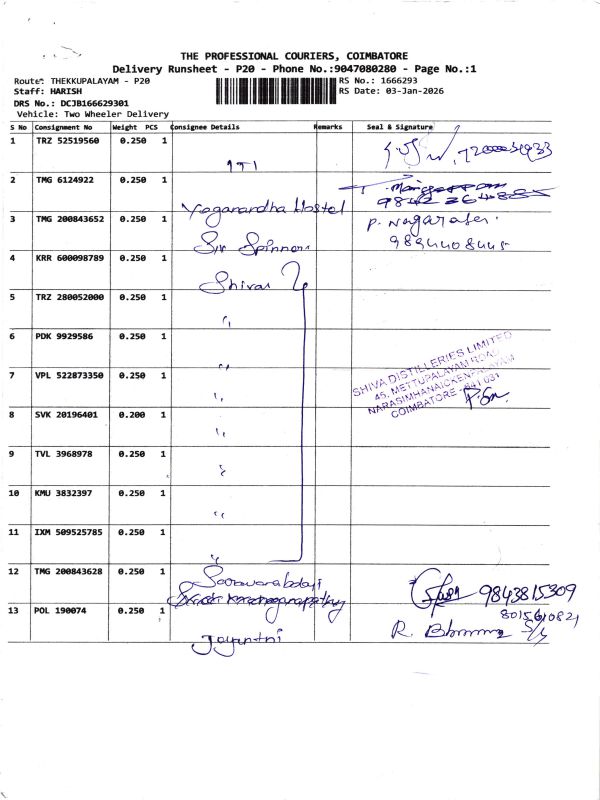 THE PROFESSIONAL COURIERS, COIMBATORE
Delivery Runsheet - P20 - Phone No.:9047080280 - Page No.:1
Route: THEKKUPALAYAM - P20
RS No.: 1666293
Staff: HARISH
RS Date: 03-Jan-2026
DRS No.: DCJB166629301
Vehicle: Two Wheeler Delivery
S No Consignment No Weight PCS Consignee Details Remarks Seal & Signature
1 TRZ 52519560 0.250 1
ITI
2 TMG 6124922 0.250 1
Yoganandha Hostel
3 TMG 200843652 0.250 1 P. Nagaraj
Siv Spinners 9894408445
4 KRR 600098789 0.250 1
Shiva
5 TRZ 280052000 0.250 1
"
6 PDK 9929586 0.250 1
"
SHIVA DISTILLERIES LIMITED
45, METTUPALAYAM ROAD
NARASIMHANAICKENPALAYAM
COIMBATORE - 641 031
7 VPL 522873350 0.250 1
"
8 SVK 20196401 0.200 1
"
9 TVL 3968978 0.250 1
"
10 KMU 3832397 0.250 1
"
11 IXM 509525785 0.250 1
"
12 TMG 200843628 0.250 1
9843815309
13 POL 190074 0.250 1
8015610821
Jayanthi R.